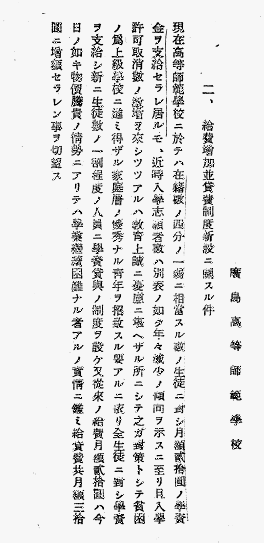 廣島高等師範學校
二、給費増加並貸費制度新設ニ關スル件
現在高等師範學校ニ於テハ在籍數ノ四分ノ一弱ニ相當スル數ノ生徒ニ對シ月額貳拾圓ノ學資
金ヲ支給セラレ居ルモ、近時入學志願者數ハ別表ノ如ク年々減少ノ傾向ヲ示スニ至リ且入學
許可取消數ノ漸増ヲ來シツツアルハ教育上誠ニ憂慮ニ堪ヘザル所ニシテ之ガ對策トシテ貧困
ノ爲上級學校ニ進ミ得ザル家庭層ノ優秀ナル青年ヲ招致スル要アルニ依リ全生徒ニ對シ學資
ヲ支給シ新ニ生徒數ノ一割程度ノ人員ニ學資貸與ノ制度ヲ設ケ又從來ノ給費月額貳拾圓ハ今
日ノ如キ物價騰貴ノ情勢ニアリテハ學業繼續困難ナル者アルノ實情ニ鑑ミ給貸費共月額三拾
圓ニ增額セラレン事ヲ切望ス